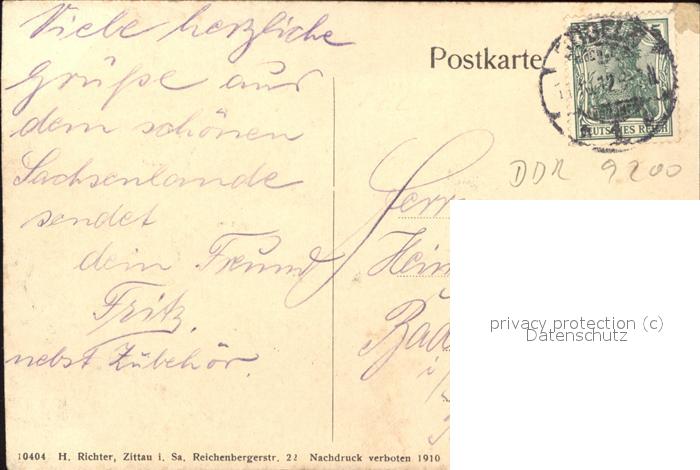 Viele herzliche
Grüße aus
dem schönen
Sachsenlande
sendet
dein Freund
Fritz.
nebst Zubehör.
Postkarte
5
DEUTSCHES REICH
DDR 9200
Herr
privacy protection (c)
Datenschutz
10404 H. Richter, Zittau i. Sa. Reichenbergerstr. 22 Nachdruck verboten 1910